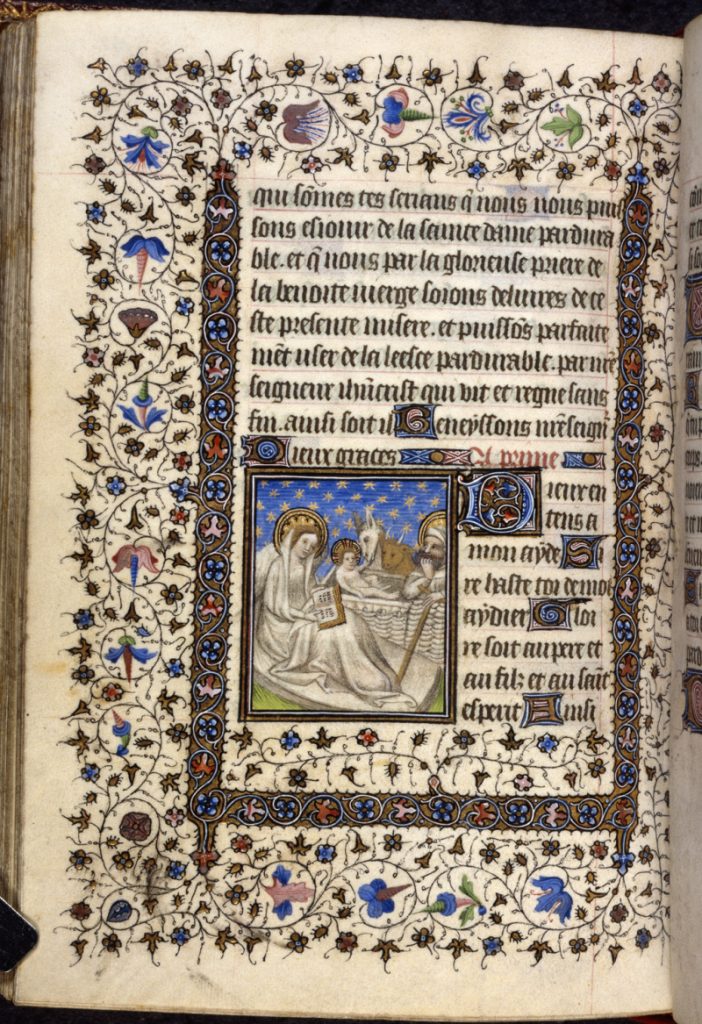 qui sõmes tes serians q̃ nous nous puis
sons esiouir de la saincte dame pardura
ble. et q̃ nous par la glorieuse priere de
la benoite vierge soions deliures de ce
ste presente misere. et puissõs parfaite
mẽt user de la leesce pardurable. par nr̃e
seigneur ihũcrist qui vit et regne sans
fin. ainsi soit il Beneyssons nr̃e seign̄r
Dieux graces A prime
Dieux en
tens a
mon ayde Si
re haste toi de moi
aydier Gloi
re soit au pere et
au filz et au saĩt
esperit Ainsi